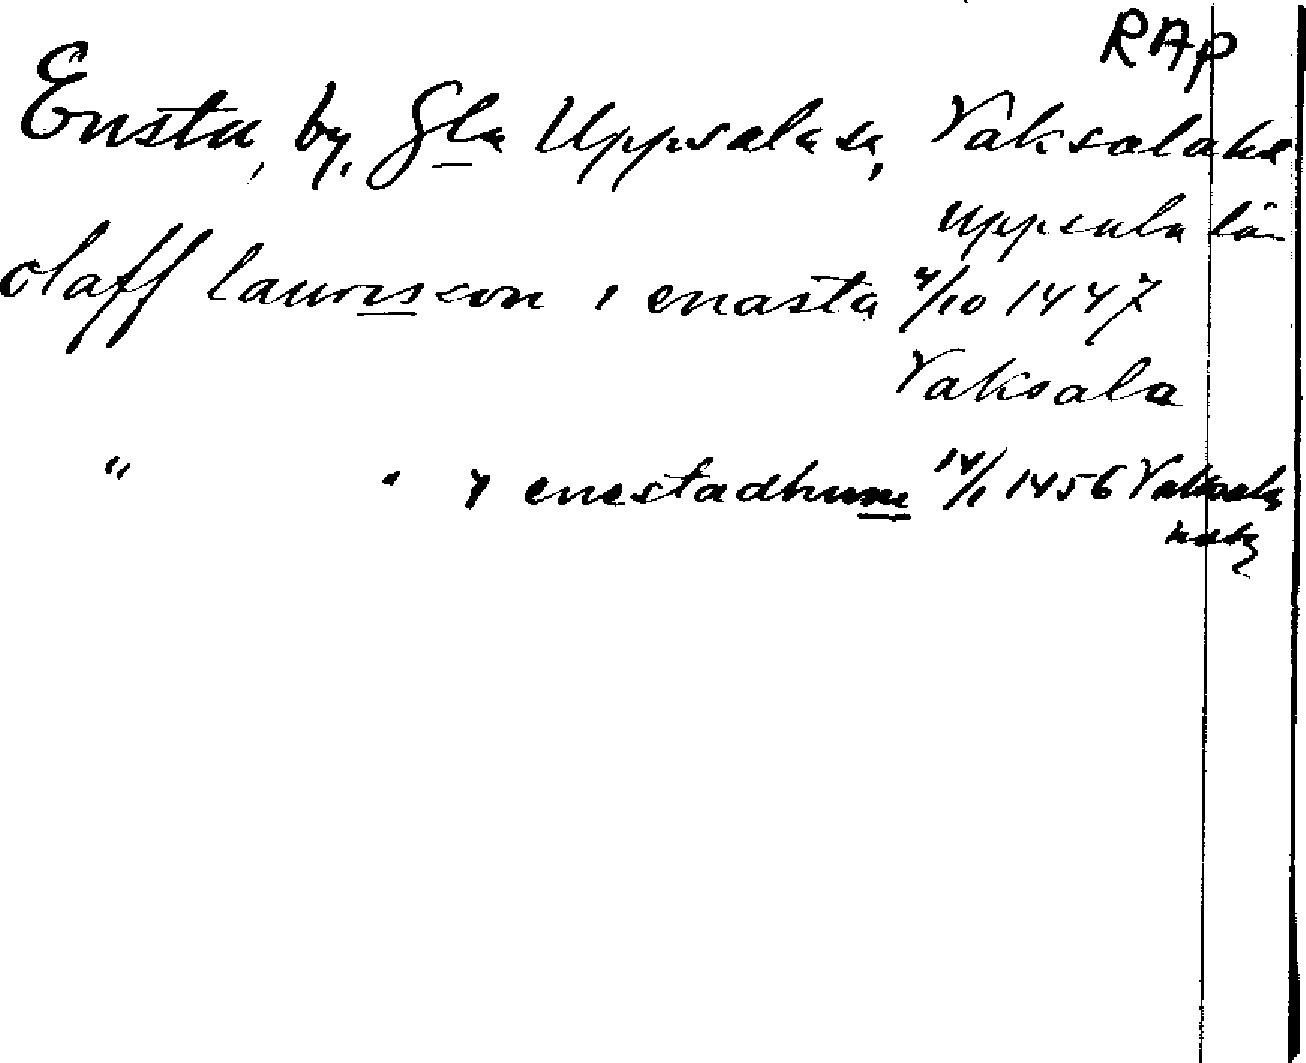 RAP
Ensta, by, Gla Uppsala sn, Vaksala hd
Uppsala län
olaff laurisson i enasta 4/10 1447
Vaksala
" " y enestadhum 14/1 1456 Vaksala